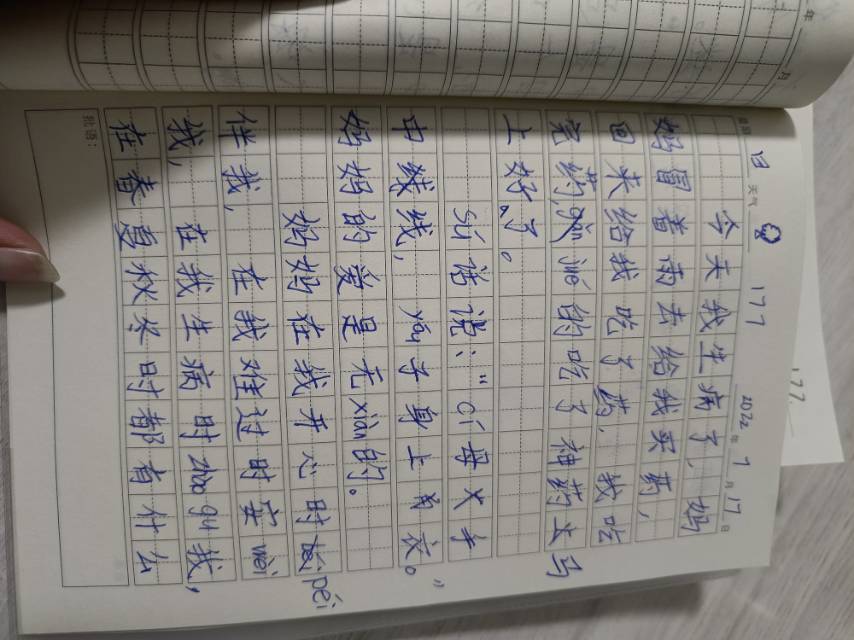 日期 2022年7月17日
177
天气
今天我生病了,妈
妈冒着雨去给我买药,
回来给我吃了药,我吃
完药,gǎn jué的吃了神药立马
上好了。
sú话说:“cí母大手
中线线,yóu子身上
衣。”
妈妈的爱是无xiàn的。
妈妈在我开心时péi
伴我,在我难过时安wèi
我,在我生病时zhào gù我,
在春夏秋冬时都有什么
批语:
177
年
月